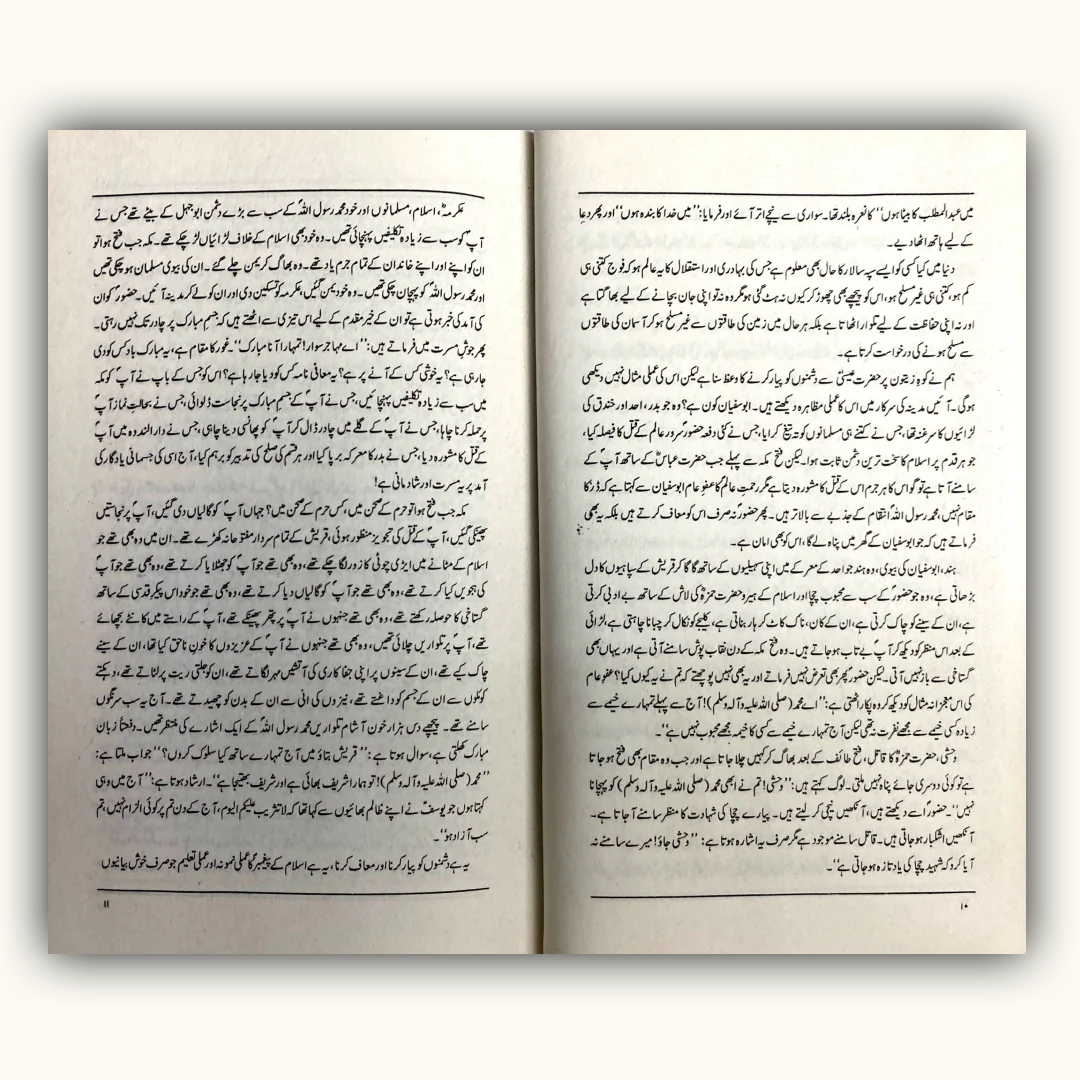 میں عبدالمطلب کا بیٹا ہوں‘‘ کا نعرہ بلند تھا۔ سواری سے نیچے اتر آئے اور فرمایا: ’’میں خدا کا بندہ ہوں‘‘ اور پھر دعا
کے لیے ہاتھ اٹھا دیے۔
دنیا میں کیا کسی کو ایسے سپہ سالار کا حال بھی معلوم ہے جس کی بہادری اور استقلال کا یہ عالم ہو کہ فوج کتنی ہی
کم ہو، کتنی ہی غیر مسلح ہو، اس کو پیچھے بھی چھوڑ کر کیوں نہ ہٹ گئی ہو مگر وہ نہ تو اپنی جان بچانے کے لیے بھاگتا ہے
اور نہ اپنی حفاظت کے لیے تلوار اٹھاتا ہے بلکہ ہر حال میں زمین کی طاقتوں سے غیر مسلح ہو کر آسمان کی طاقتوں
سے مسلح ہونے کی درخواست کرتا ہے۔
ہم نے کوہِ زیتون پر حضرت عیسیٰؑ سے دشمنوں کو پیار کرنے کا وعظ سنا ہے لیکن اس کی عملی مثال نہیں دیکھی
ہوگی۔ آئیں مدینہ کی سرکار میں اس کا عملی مظاہرہ دیکھتے ہیں۔ ابوسفیان کون ہے؟ وہ جو بدر، احد اور خندق کی
لڑائیوں کا سرغنہ تھا، جس نے کتنے ہی مسلمانوں کو تہ تیغ کرایا، جس نے کئی دفعہ حضورؐ سرورِ عالم کے قتل کا فیصلہ کیا،
جو ہر قدم پر اسلام کا سخت ترین دشمن ثابت ہوا۔ لیکن فتح مکہ سے پہلے جب حضرت عباسؓ کے ساتھ آپؐ کے
سامنے آتا ہے تو گو اس کا ہر جرم اس کے قتل کا مشورہ دیتا ہے مگر رحمتِ عالمؐ کا عفوِ عام ابوسفیان سے کہتا ہے کہ ڈر کا
مقام نہیں، محمد رسول اللہؐ انتقام کے جذبے سے بالاتر ہیں۔ پھر حضورؐ نہ صرف اس کو معاف کرتے ہیں بلکہ یہ بھی
فرماتے ہیں کہ جو ابوسفیان کے گھر میں پناہ لے گا، اس کو بھی امان ہے۔
ہند، ابوسفیان کی بیوی، وہ ہند جو احد کے معرکے میں اپنی سہیلیوں کے ساتھ گا گا کر قریش کے سپاہیوں کا دل
بڑھاتی ہے، وہ جو حضورؐ کے سب سے محبوب چچا اور اسلام کے ہیرو حضرت حمزہؓ کی لاش کے ساتھ بے ادبی کرتی
ہے، ان کے سینے کو چاک کرتی ہے، ان کے کان، ناک کاٹ کر ہار بناتی ہے، کلیجے کو نکال کر چبانا چاہتی ہے، لڑائی
کے بعد اس منظر کو دیکھ کر آپؐ بے تاب ہو جاتے ہیں۔ وہ فتح مکہ کے دن نقاب پوش سامنے آتی ہے اور یہاں بھی
گستاخی سے باز نہیں آتی۔ لیکن حضورؐ پھر بھی تعرض نہیں فرماتے اور یہ بھی نہیں پوچھتے کہ تم نے یہ کیوں کیا؟ عفوِ عام
کی اس معجزانہ مثال کو دیکھ کر وہ پکار اٹھتی ہے: ’’اے محمد (صلی اللہ علیہ وآلہ وسلم)! آج سے پہلے تمہارے خیمے سے
زیادہ کسی خیمے سے مجھے نفرت نہ تھی لیکن آج تمہارے خیمے سے کسی کا خیمہ مجھے محبوب نہیں ہے‘‘۔
وحشی، حضرت حمزہؓ کا قاتل، فتح طائف کے بعد بھاگ کر کہیں چلا جاتا ہے اور جب وہ مقام بھی فتح ہو جاتا
ہے تو کوئی دوسری جائے پناہ نہیں ملتی۔ لوگ کہتے ہیں: ’’وحشی! تم نے ابھی محمد (صلی اللہ علیہ وآلہ وسلم) کو پہچانا
نہیں‘‘۔ حضورؐ اسے دیکھتے ہیں، آنکھیں نیچی کر لیتے ہیں۔ پیارے چچا کی شہادت کا منظر سامنے آ جاتا ہے۔
آنکھیں اشکبار ہو جاتی ہیں۔ قاتل سامنے موجود ہے مگر صرف یہ اشارہ ہوتا ہے: ’’وحشی جاؤ! میرے سامنے نہ
آیا کرو کہ شہید چچا کی یاد تازہ ہو جاتی ہے‘‘۔
۱۰
عکرمہؓ، اسلام، مسلمانوں اور خود محمد رسول اللہؐ کے سب سے بڑے دشمن ابوجہل کے بیٹے تھے جس نے
آپؐ کو سب سے زیادہ تکلیفیں پہنچائی تھیں۔ وہ خود بھی اسلام کے خلاف لڑائیاں لڑ چکے تھے۔ مکہ جب فتح ہوا تو
ان کو اپنے اور اپنے خاندان کے تمام جرم یاد تھے۔ وہ بھاگ کر یمن چلے گئے۔ ان کی بیوی مسلمان ہو چکی تھیں
اور محمد رسول اللہؐ کو پہچان چکی تھیں۔ وہ خود یمن گئیں، عکرمہ کو تسکین دی اور ان کو لے کر مدینہ آئیں۔ حضورؐ کو ان
کی آمد کی خبر ہوتی ہے تو ان کے خیر مقدم کے لیے اس تیزی سے اٹھتے ہیں کہ جسمِ مبارک پر چادر تک نہیں رہتی۔
پھر جوشِ مسرت میں فرماتے ہیں: ’’اے مہاجر سوار! تمہارا آنا مبارک‘‘۔ غور کا مقام ہے، یہ مبارک باد کس کو دی
جا رہی ہے؟ یہ خوشی کس کے آنے پر ہے؟ یہ معافی نامہ کس کو دیا جا رہا ہے؟ اس کو جس کے باپ نے آپؐ کو مکہ
میں سب سے زیادہ تکلیفیں پہنچائیں، جس نے آپؐ کے جسمِ مبارک پر نجاست ڈلوائی، جس نے بحالتِ نماز آپؐ
پر حملہ کرنا چاہا، جس نے آپؐ کے گلے میں چادر ڈال کر آپؐ کو پھانسی دینا چاہی، جس نے دارالندوہ میں آپؐ
کے قتل کا مشورہ دیا، جس نے بدر کا معرکہ برپا کیا اور ہر قسم کی صلح کی تدبیر کو برہم کیا، آج اسی کی جسمانی یادگار کی
آمد پر یہ مسرت اور شادمانی ہے!
مکہ جب فتح ہوا تو حرم کے صحن میں، کس حرم کے صحن میں؟ جہاں آپؐ کو گالیاں دی گئیں، آپؐ پر نجاستیں
پھینکی گئیں، آپؐ کے قتل کی تجویز منظور ہوئی، قریش کے تمام سردار مفتوحانہ کھڑے تھے۔ ان میں وہ بھی تھے جو
اسلام کے مٹانے میں ایڑی چوٹی کا زور لگا چکے تھے، وہ بھی تھے جو آپؐ کو جھٹلایا کرتے تھے، وہ بھی تھے جو آپؐ
کی ہجویں کیا کرتے تھے، وہ بھی تھے جو آپؐ کو گالیاں دیا کرتے تھے، وہ بھی تھے جو خود اس پیکرِ قدسی کے ساتھ
گستاخی کا حوصلہ رکھتے تھے، وہ بھی تھے جنہوں نے آپؐ پر پتھر پھینکے تھے، آپؐ کے راستے میں کانٹے بچھائے
تھے، آپؐ پر تلواریں چلائی تھیں، وہ بھی تھے جنہوں نے آپؐ کے عزیزوں کا خونِ ناحق کیا تھا، ان کے سینے
چاک کیے تھے، ان کے سینوں پر اپنی جفا کاری کی آتشیں مہر لگاتے تھے، ان کو جلتی ریت پر لٹاتے تھے، دہکتے
کوئلوں سے ان کے جسم کو داغتے تھے، نیزوں کی انی سے ان کے بدن کو چھیدتے تھے۔ آج یہ سب سرنگوں
سامنے تھے۔ پیچھے دس ہزار خون آشام تلواریں محمد رسول اللہؐ کے ایک اشارے کی منتظر تھیں۔ دفعتاً زبانِ
مبارک کھلتی ہے، سوال ہوتا ہے: ’’قریش بتاؤ میں آج تمہارے ساتھ کیا سلوک کروں؟‘‘ جواب ملتا ہے:
’’محمد (صلی اللہ علیہ وآلہ وسلم)! تو ہمارا شریف بھائی ہے اور شریف بھتیجا ہے‘‘۔ ارشاد ہوتا ہے: ’’آج میں وہی
کہتا ہوں جو یوسفؑ نے اپنے ظالم بھائیوں سے کہا تھا کہ لا تثریب علیکم الیوم، آج کے دن تم پر کوئی الزام نہیں، تم
سب آزاد ہو‘‘۔
یہ ہے دشمنوں کو پیار کرنا اور معاف کرنا، یہ ہے اسلام کے پیغمبرؐ کا عملی نمونہ اور عملی تعلیم جو صرف خوش بیانیوں
۱۱